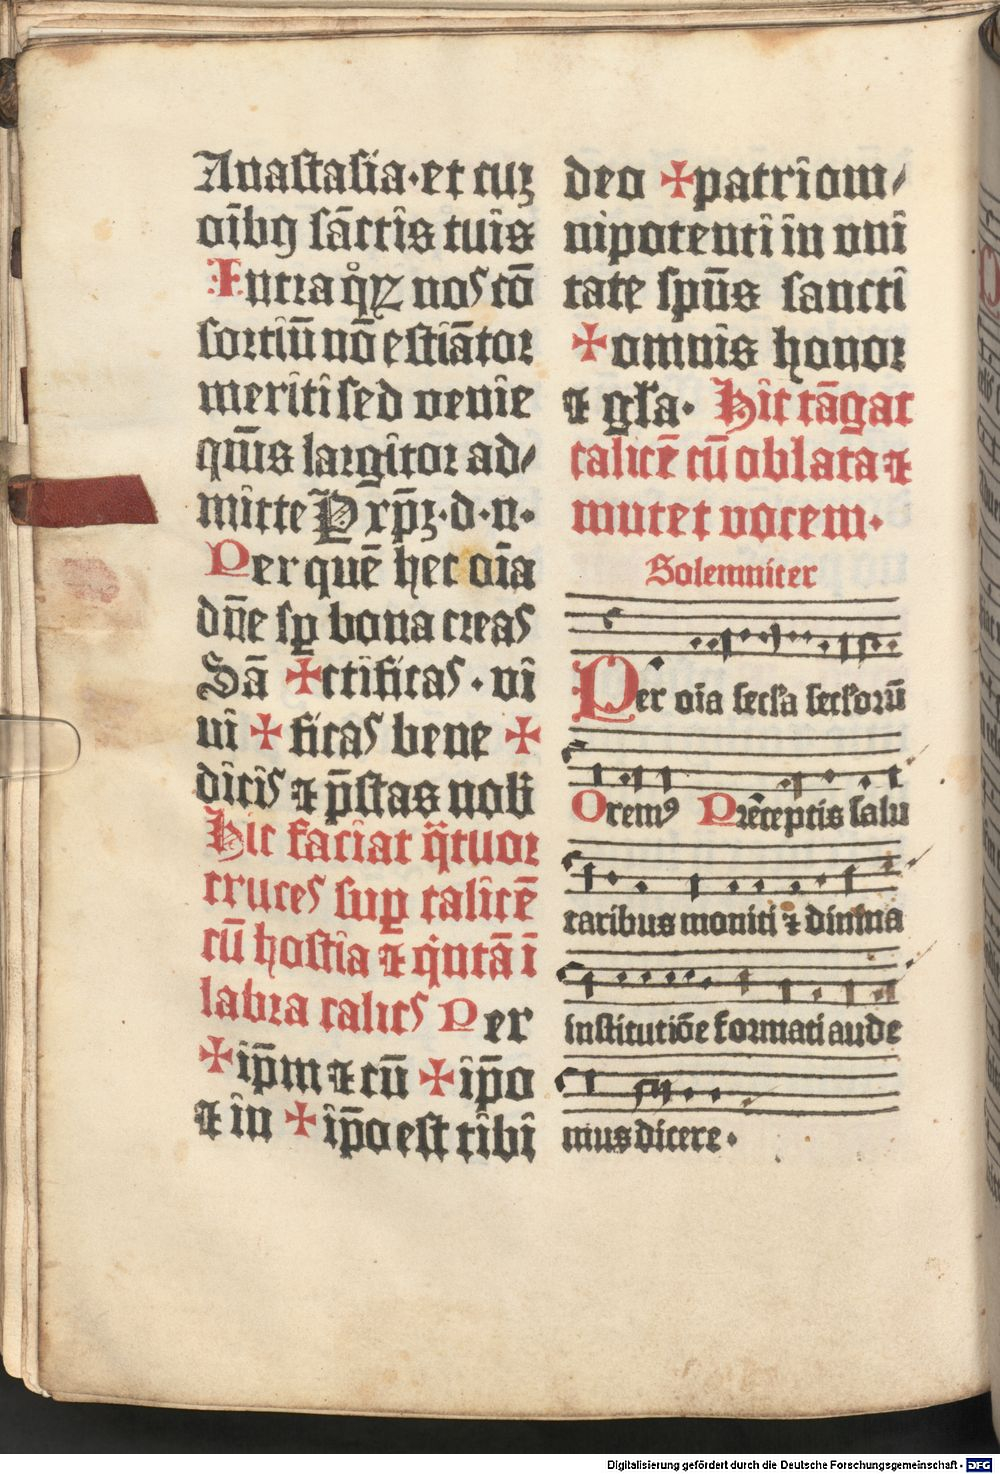 Anastasia·et cuꝫ
oı̄bꝰ sāctis tuis
Intra qͦꝝ nos cō
sortiū nō estiātor
meriti sed venie
qm̄s largitor ad/
mitte P xp̄ꝫ·d·n·
Per quē hec oı̄a
dn̄e sꝑ bona creas
Sā ✠ctificas·vi
ui ✠ ficas bene ✠
dicis ⁊ p̄stas nob̄
Hic faciat qͣtuor
cruces suꝑ calicē
cū hostia ⁊ qͥntā ī
labra calicꝭ Per
✠ip̄m ⁊ cū ✠ip̄o
⁊ in ✠ip̄o est tibi
deo ✠patri om/
nipotenti in vni
tate spūs sancti
✠omnis honor
⁊ gl̄a· Hic tāgat
calicē cū oblata ⁊
mutet vocem·
Solemniter
Per oı̄a secl̄a secl̄orū
Oremꝰ Prēceptis salu
taribus moniti ⁊ diuina
institutiōe formati aude
mus dicere·
Digitalisierung gefördert durch die Deutsche Forschungsgemeinschaft - DFG